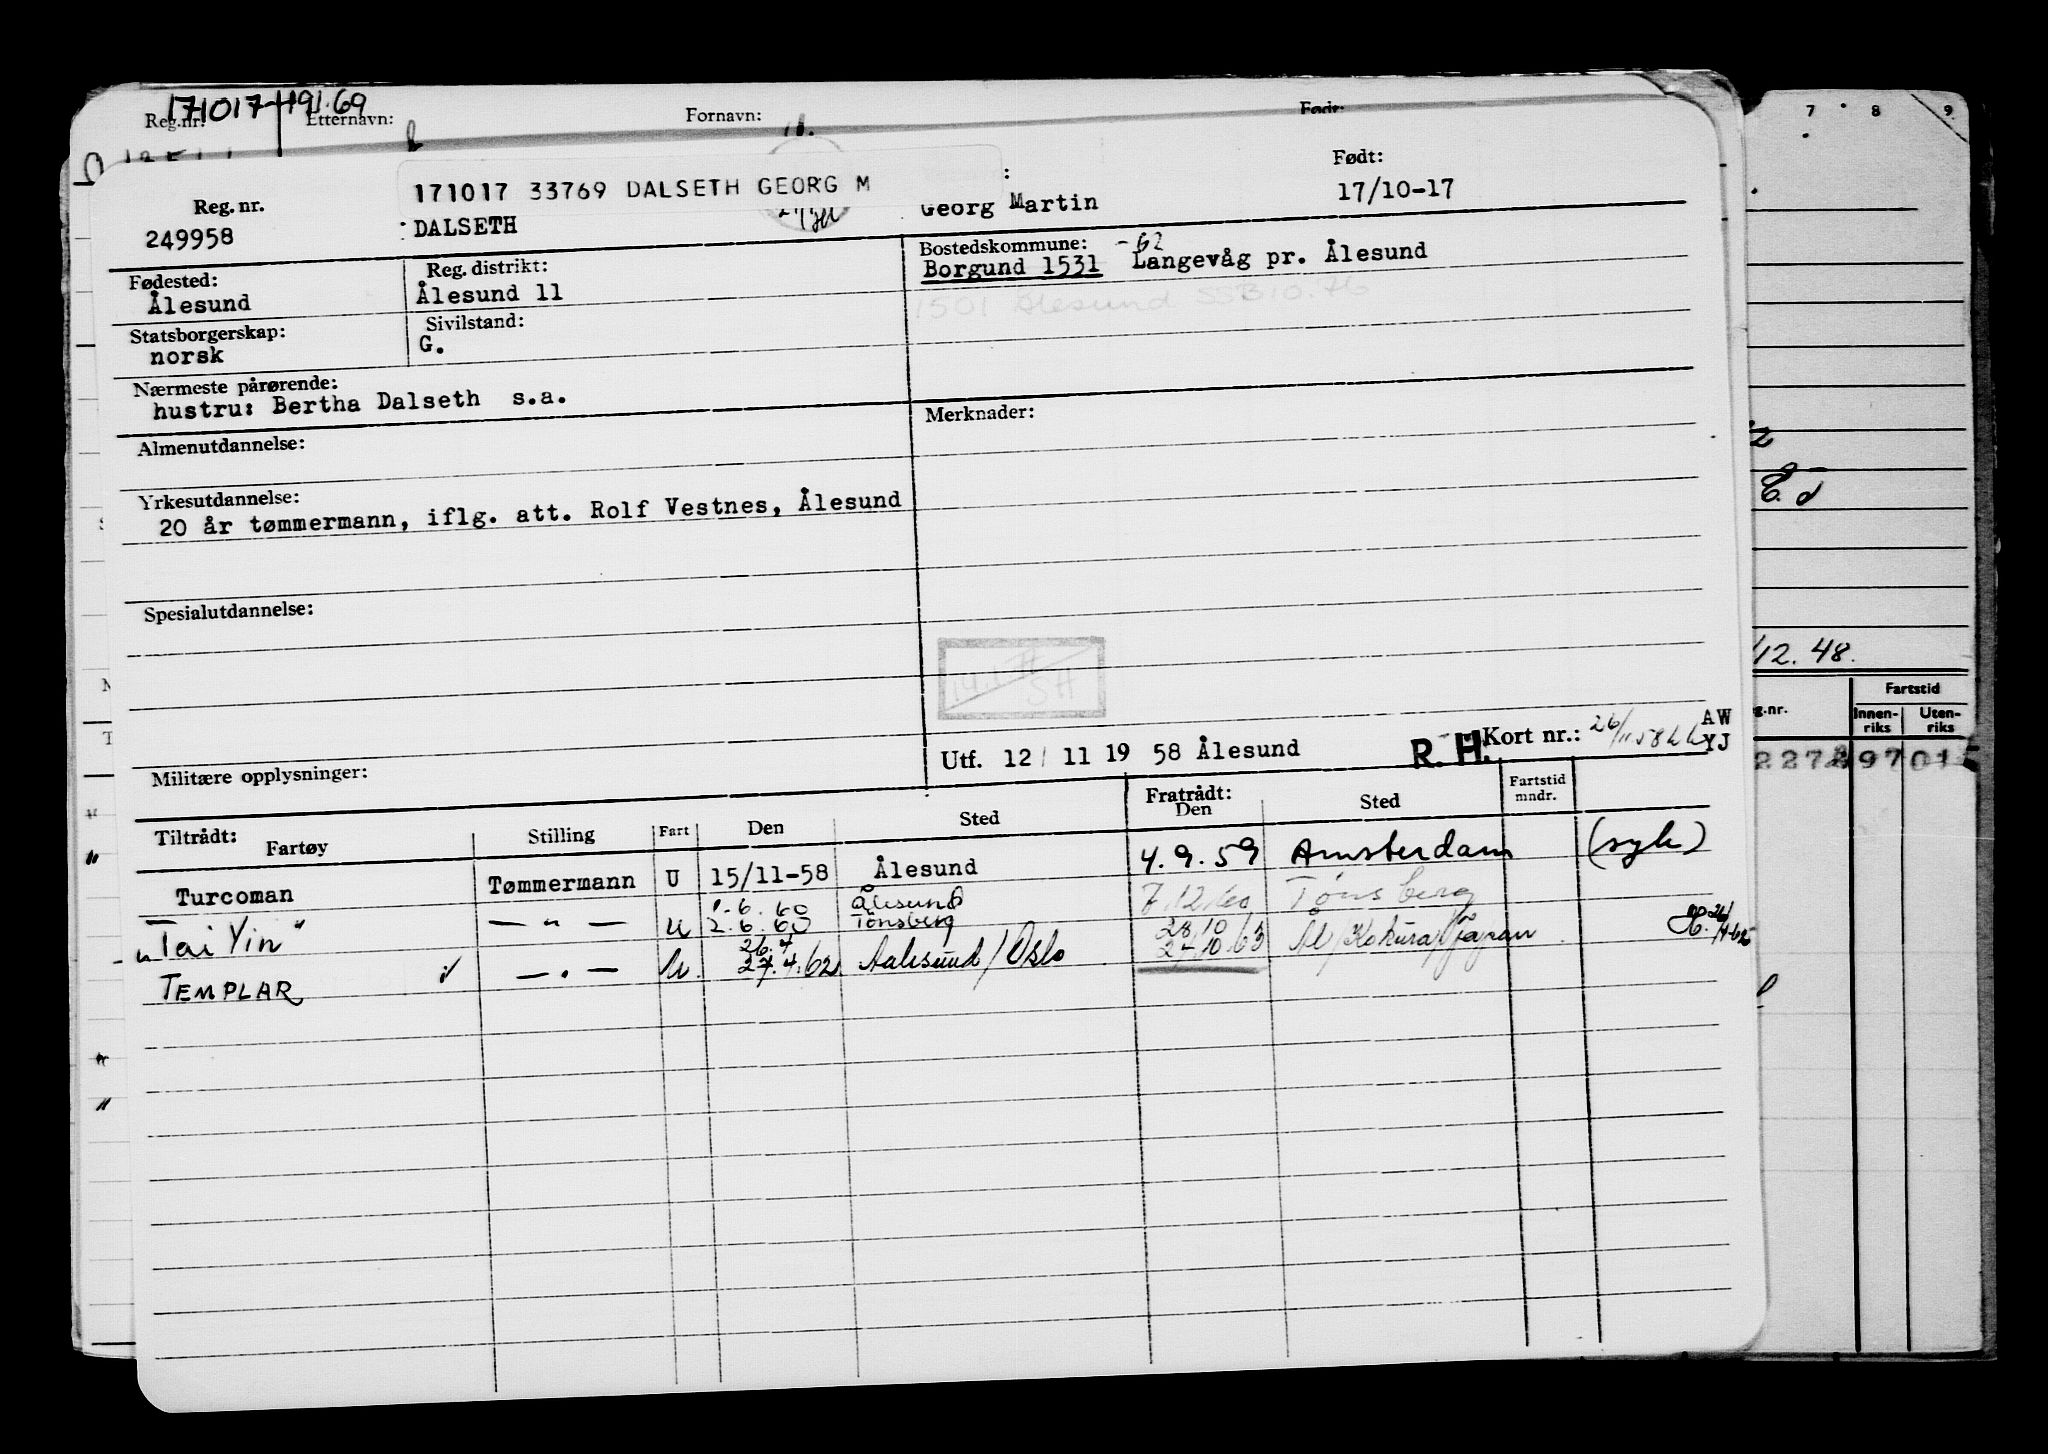 171017
Reg.nr. Etternavn: Fornavn: Født:
7 8 9
171017 33769 DALSETH GEORG M
Født:
Reg. nr.
249958 DALSETH Georg Martin 17/10-17
Fødested: Reg. distrikt: Bostedskommune: -62
Ålesund Ålesund 11 Borgund 1531 Langevåg pr. Ålesund
1501 Ålesund SSB 10.76
Statsborgerskap: Sivilstand:
norsk G.
Nærmeste pårørende:
hustru: Bertha Dalseth s.a.
Merknader:
Almenutdannelse:
Yrkesutdannelse:
20 år tømmermann, iflg. att. Rolf Vestnes, Ålesund
Spesialutdannelse:
12.48.
Fartstid
Innenriks Utenriks
Utf. 12/11 1958 Ålesund R. H. Kort nr.: 26/11 58 AW
YJ
Militære opplysninger:
Tiltrådt: Fratrådt: Fartstid mndr.
Fartøy Stilling Fart Den Sted Den Sted
Turcoman Tømmermann U 15/11-58 Ålesund 4.9.59 Amsterdam (syk)
1.6.60 Ålesund
"Tai Yin" — " — U 2.6.60 Tønsberg 7.12.60 Tønsberg
26.4 28.10
TEMPLAR — " — U. 27.4.62 Aalesund/Oslo 27.10.63 Ål/Kokura/Japan